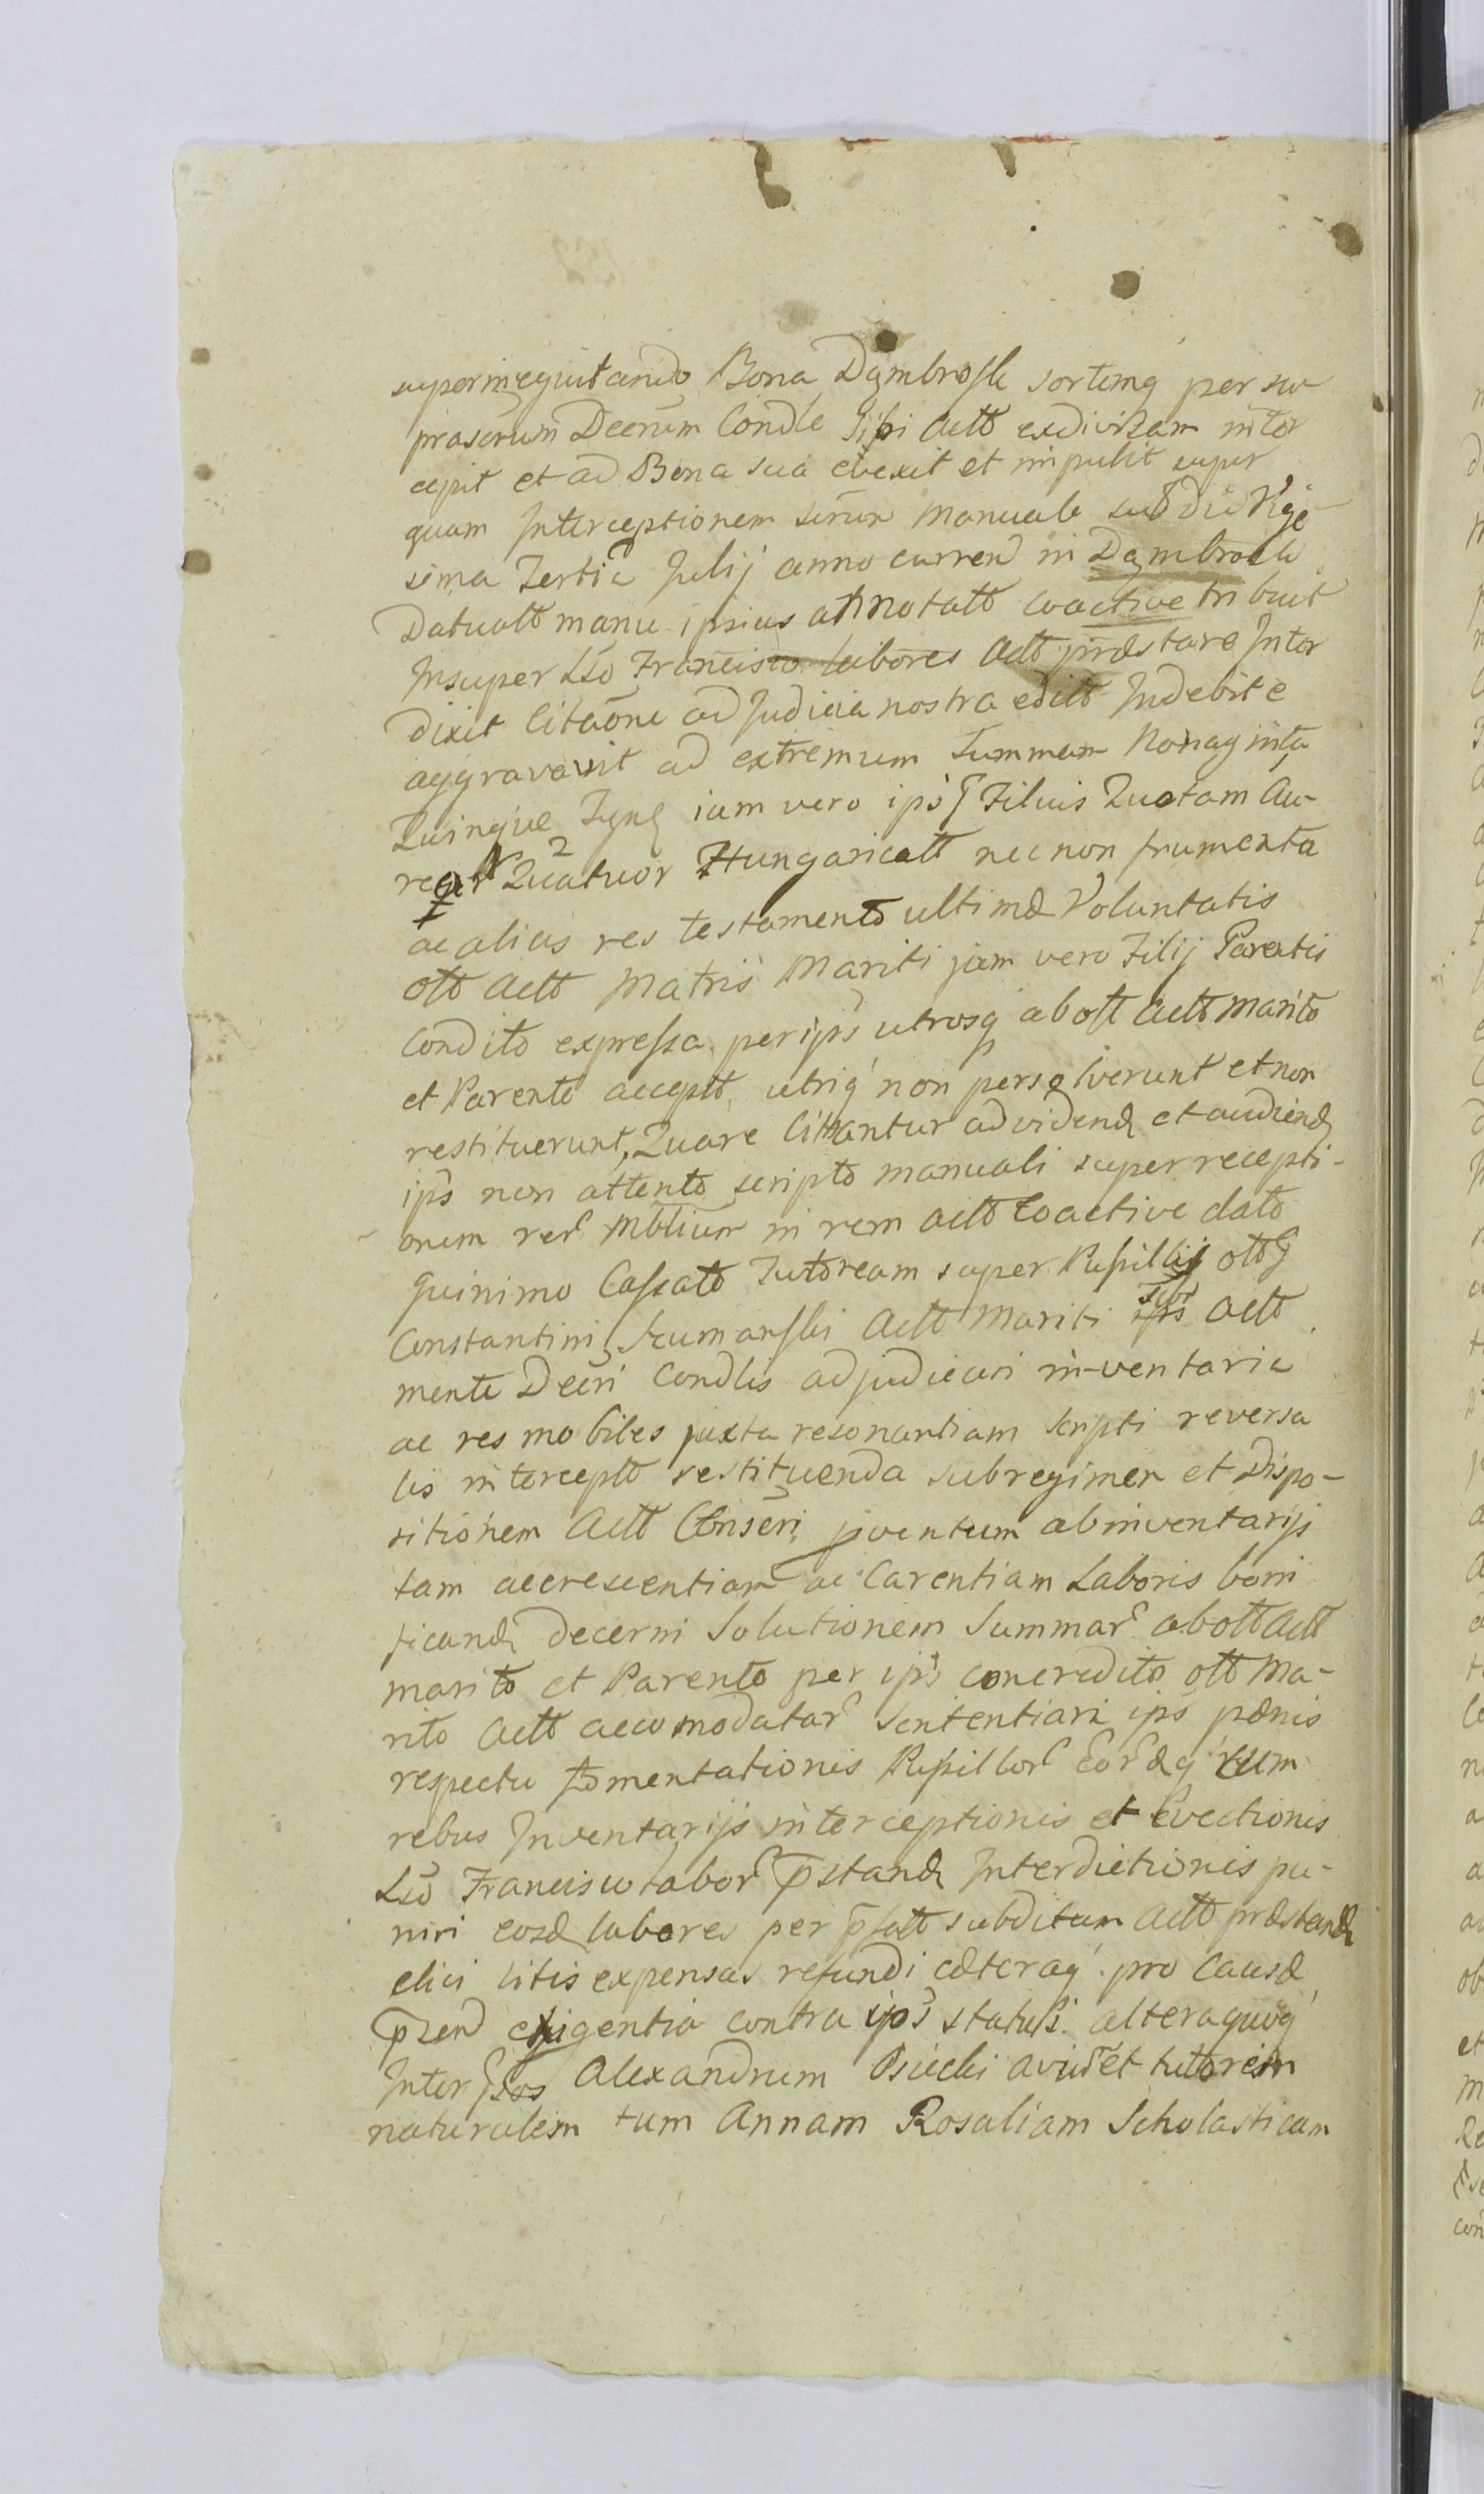 superinequitando Bona Dąmbrosk sortemq per su
prascrum Decrum Condle sibi Actt exdivisam inter
cepit et ad Bona sua evexit et impulit super
quam Interceptionem scrum manuale sub die Vige
sima Tertia Julij anno curren in Dąmbrosk
Datuatt manu ipsius annotatt coactive tribuit
Insuper Lso Francisco labores Actt præstare Inter
dixit Citaone ad Judicia nostra edict Indebite
aggravavit ad extremum Summam Nonaginta
Quinque Tynf iam vero ips Filius Quotam Au-
reor 2 Quatuor Hungaricatt nec non frumenta
ac alias res testamento ultimæ Voluntatis
ott Actt Matris Mariti jam vero Filij Parentis
Condito expressa per ips utrosq ab ott Actt Marito
et Parente accept utriq non persolverunt et non
restituerunt, Quare Citantur ad videnð et audienð
ips non attento scripto manuali super recepti-
onem rer mblium in rem Actt Coactive dato
quinimo Cassato Tutoream super Pupillis ott
Constantini Szumanski Actt Mariti ips Actt
mente Decri Condlis adjudicari inventaria
ac res mobiles juxta resonantiam scripti reversa
lis intercept restituenda sub regimen et Dispo-
sitionem Actt Conseri, pventum ab inventarijs
tam accrescentiam ac Carentiam Laboris boni
ficanð decerni Solutionem Summar ab ott Actt
marito et Parente per ips concredito ott Ma-
rito Actt accomodatar Sententiari ips pænis
respectu fomentationis Pupillor eor dq cum
rebus Inventarijs interceptionis et Evectionis
Lso Francisco labor pstanð Interdictionis pu-
niri eosd labores per psatt subditum Actt præstanð
elici litis expensas refundi cæteraq pro Causæ
psen exigentia contra ips statui. alteraquoq
Inter psos Alexandrum Psiecki avum et tutorem
naturalem tum Annam Rosaliam Scholasticam